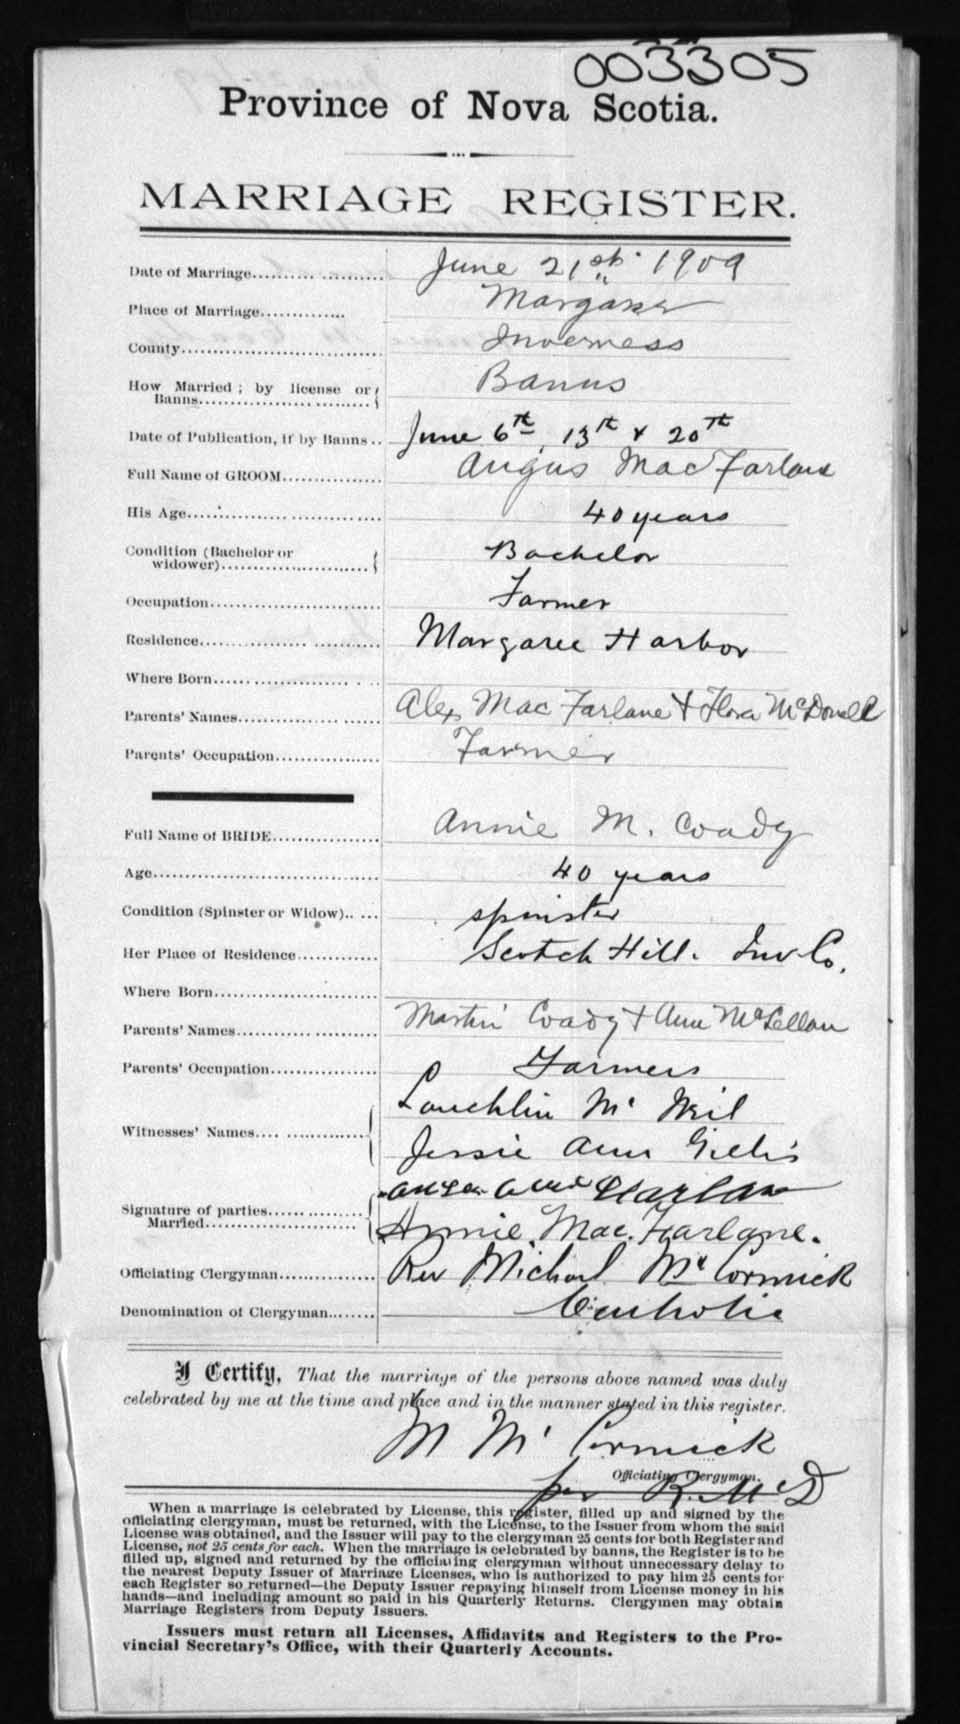 003305
Province of Nova Scotia.
MARRIAGE REGISTER.
Date of Marriage.................... June 21st 1909
Place of Marriage............. Margaree
County.................................. Inverness
How Married; by license or
Banns.......................... Banns
Date of Publication, if by Banns.. June 6th, 13th & 20th
Full Name of GROOM................ Angus MacFarlane
His Age............................ 40 years
Condition (Bachelor or
widower)........................ Bachelor
Occupation............................. Farmer
Residence.......................... Margaree Harbor
Where Born..........................
Parents' Names...................... Alex MacFarlane & Flora McDonell
Parents' Occupation................. Farmer
Full Name of BRIDE................. Annie M. Coady
Age..................................... 40 years
Condition (Spinster or Widow)..... spinster
Her Place of Residence............. Scotch Hill. Inv Co.
Where Born...........................
Parents' Names...................... Martin Coady & Ann McLellan
Parents' Occupation................. Farmers
Witnesses' Names.................. Lauchlin Mc Neil
Jessie Ann Gillis
Signature of parties
Married........................ Annie. Mac. Farlane.
Officiating Clergyman............... Rev Michael Mc Cormick
Denomination of Clergyman........ Catholic
I Certify, That the marriage of the persons above named was duly
celebrated by me at the time and place and in the manner stated in this register.
M Mc Cormick
Officiating Clergyman.
per R. McD
When a marriage is celebrated by License, this register, filled up and signed by the
officiating clergyman, must be returned, with the License, to the Issuer from whom the said
License was obtained, and the Issuer will pay to the clergyman 25 cents for both Register and
License, not 25 cents for each. When the marriage is celebrated by banns, the Register is to be
filled up, signed and returned by the officiating clergyman without unnecessary delay to
the nearest Deputy Issuer of Marriage Licenses, who is authorized to pay him 25 cents for
each Register so returned—the Deputy Issuer repaying himself from License money in his
hands—and including amount so paid in his Quarterly Returns. Clergymen may obtain
Marriage Registers from Deputy Issuers.
Issuers must return all Licenses, Affidavits and Registers to the Pro-
vincial Secretary's Office, with their Quarterly Accounts.